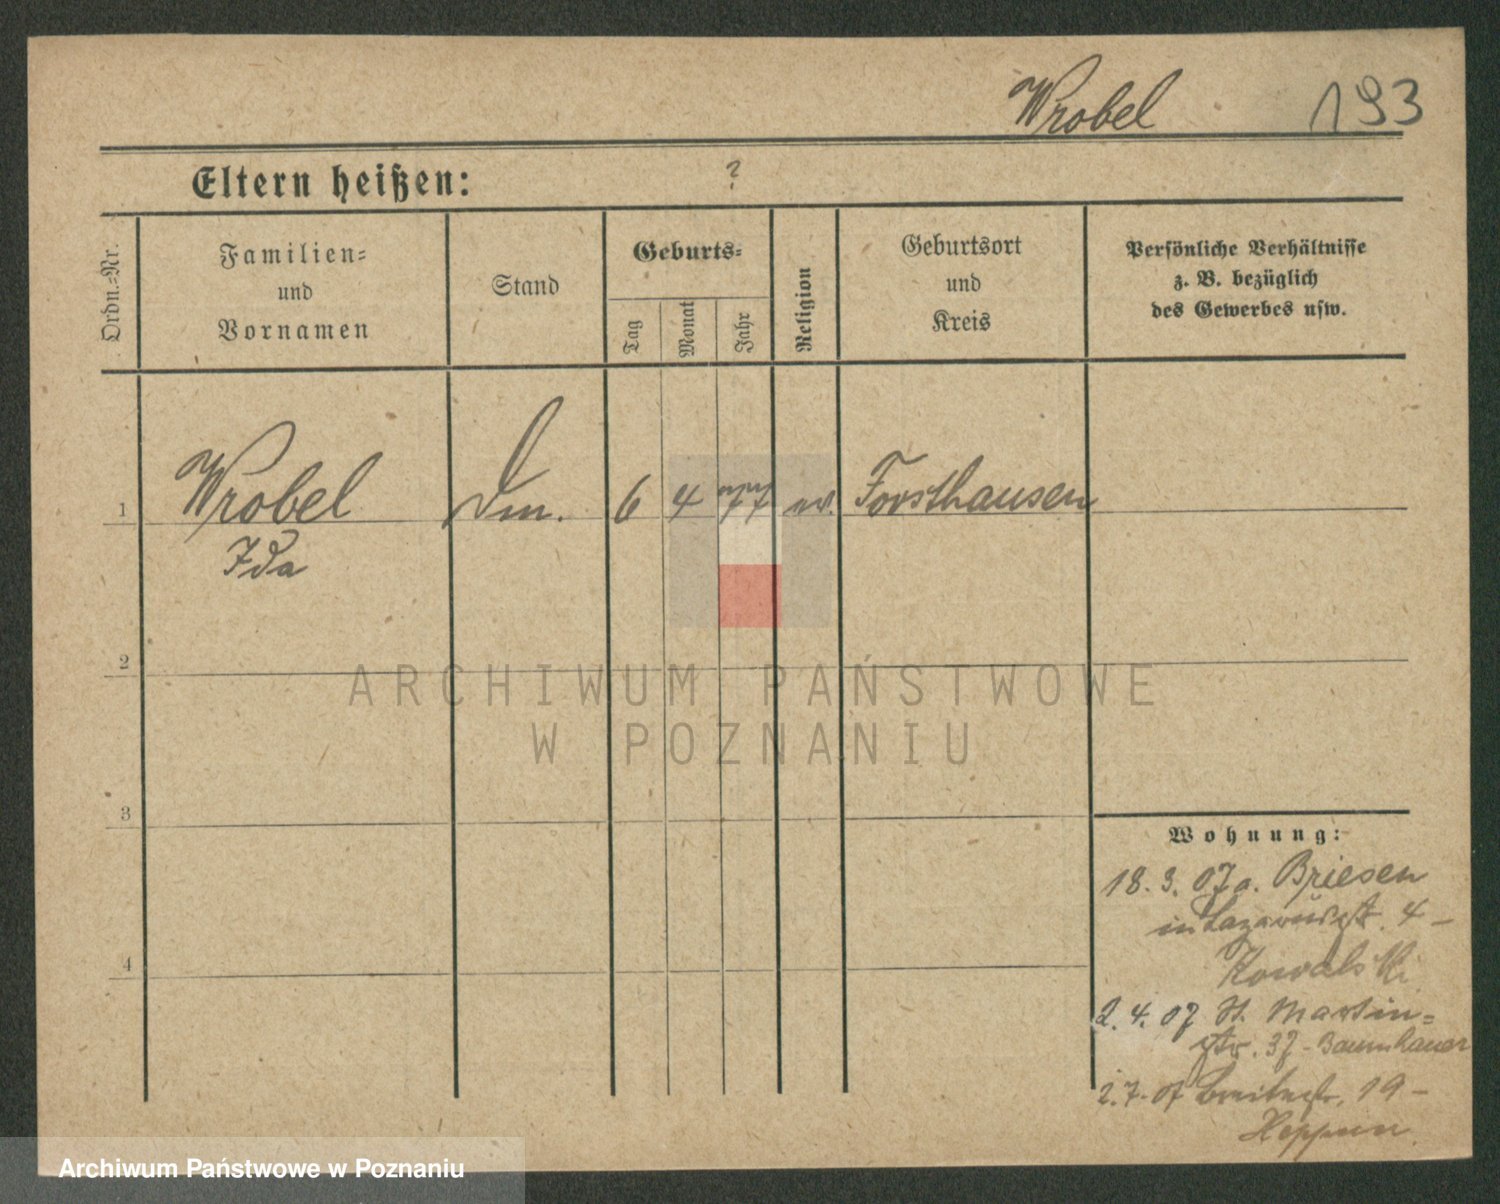 Wrobel 193
Eltern heißen: ?
Ordn.-Nr.
Familien-
und
Vornamen
Stand
Geburts-
Tag
Monat
Jahr
Religion
Geburtsort
und
Kreis
Persönliche Verhältnisse
z. B. bezüglich
des Gewerbes usw.
1 Wrobel 6 4 77 ev. Forsthausen
Ida
2
ARCHIWUM PAŃSTWOWE
W POZNANIU
3
Wohnung:
18. 3. 07 a. Briesen
in Lazarusstr. 4 –
Kowalski
4
2. 4. 07 St. Martin=
str. 37 - Baumhauer
2. 7. 07 Breitestr. 19 –
Archiwum Państwowe w Poznaniu